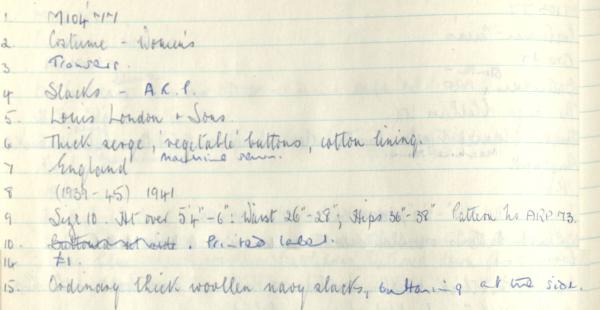 1 M104'77
2. Costume - Women's
3 Trousers.
4 Slacks - A.R.P.
5. Louis London + Sons
6 Thick serge, 'vegetable' buttons, cotton lining.
machine sewn.
7 England
8 (1939-45) 1941
9 Size 10. Ht over 5'4"-6": Waist 26"-28"; Hips 36"-38" Pattern No ARP 73.
10. buttons at side. Printed label.
14 £1.
15. Ordinary thick woollen navy slacks, buttoning at the side.